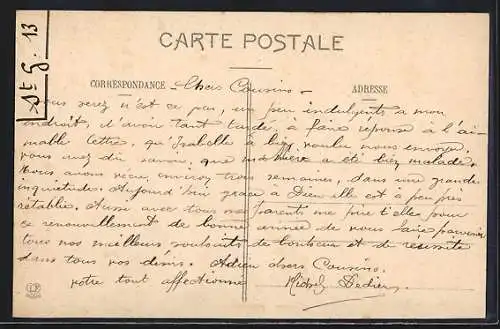 St G. 13
CARTE POSTALE
CORRESPONDANCE - Chers Cousins - ADRESSE
Vous serez n'est ce pas, un peu indulgents a mon
endroit, d'avoir tant tardé, à faire reponse à l'ai-
mable lettre, qu'Isabelle a bien voulu nous envoyer,
vous avez dû savoir, que ma mère a été bien malade.
Nous avons vécu environ trois semaines, dans une grande
inquietude. Aujourd'hui grace à Dieu elle est à peu près
retablie. Aussi avec tous mes parents me joins t'elle pour
ce renouvellement de bonne année de vous faire parvenir
tous nos meilleurs souhaits de bonheur et de reussite
dans tous vos désirs. Adieu chers Cousins.
votre tout affectionné Michel